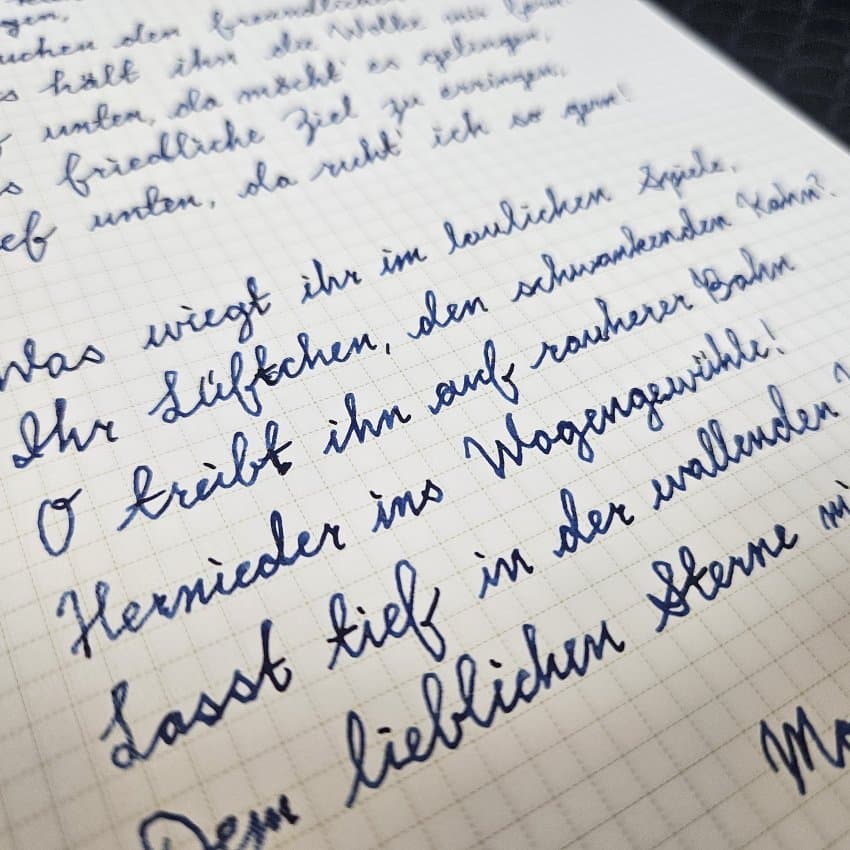 den freundlichen
hält ihn die Wolke mir fern.
unten, da möcht' es gelingen,
friedliche Ziel zu erringen,
unten, da ruht' ich so gern!
Was wiegt ihr im laulichen Spiele,
Ihr Lüftchen, den schwankenden Kahn?
O treibt ihn auf rauherer Bahn
Hernieder ins Wogengewühle!
Lasst tief in der wallenden
Dem lieblichen Sterne